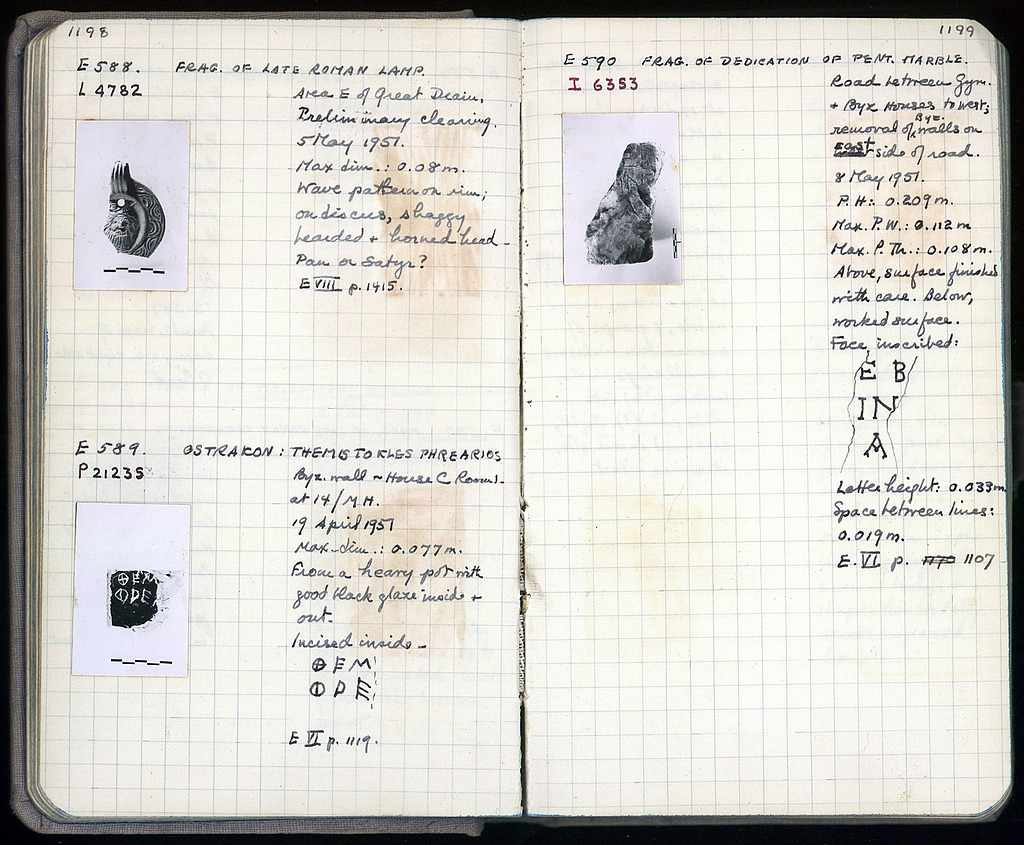 1198
E 588. FRAG. OF LATE ROMAN LAMP.
L 4782
Area E of Great Drain.
Preliminary clearing.
5 May 1951.
Max dim.: 0.08 m.
Wave pattern on rim;
on discus, shaggy
bearded + horned head –
Pan or Satyr?
E VIII p. 1415.
E 589. OSTRAKON: THEMISTOKLES PHREARIOS
P 21235
Byz. wall ~ House C Room 1-
at 14/ΜΗ.
19 April 1951
Max. dim.: 0.077 m.
From a heavy pot with
good black glaze inside +
out.
Incised inside –
ΘΕΜ
ΦΡΕ
E VI p. 1119.
1199
E 590 FRAG. OF DEDICATION OF PENT. MARBLE.
I 6353
Road between Gym.
+ Byz Houses to west;
removal of Byz. walls on
East side of road.
8 May 1951.
P. H.: 0.209 m.
Max. P. W.: 0.112 m
Max. P. Th.: 0.108 m.
Above, surface finished
with care. Below,
worked surface.
Face inscribed:
Ε Β
ΙΝ
Α
Letter height: 0.033 m
Space between lines:
0.019 m.
E. VI p. 1107